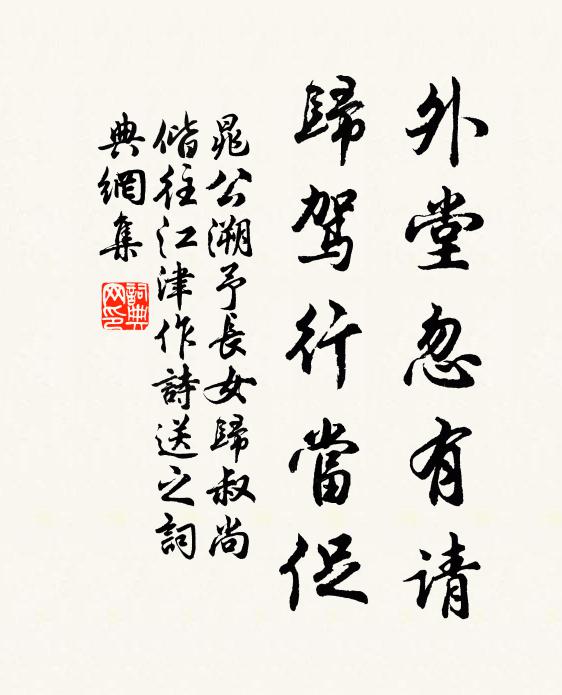 外堂忽有请
歸駕行當促
晁公溯予長女歸叔尚
偕往江津作詩送之詞
典網集
詞典网印